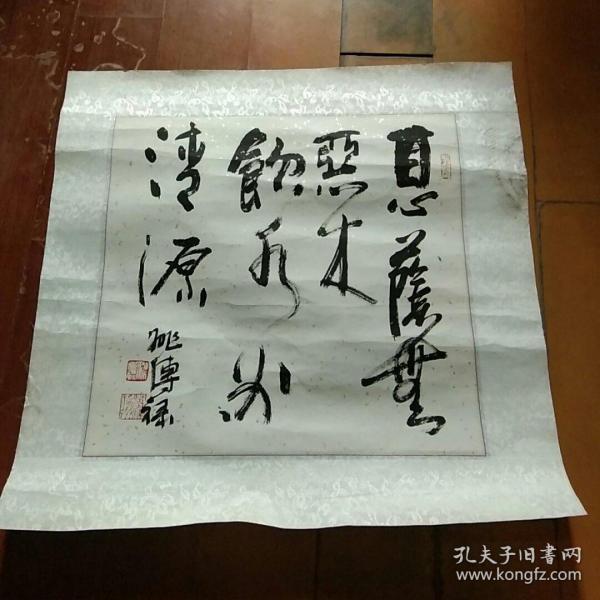 息蔭無
惡木
飲水必
清源
姚傳祿
孔夫子旧书网
www.kongfz.com